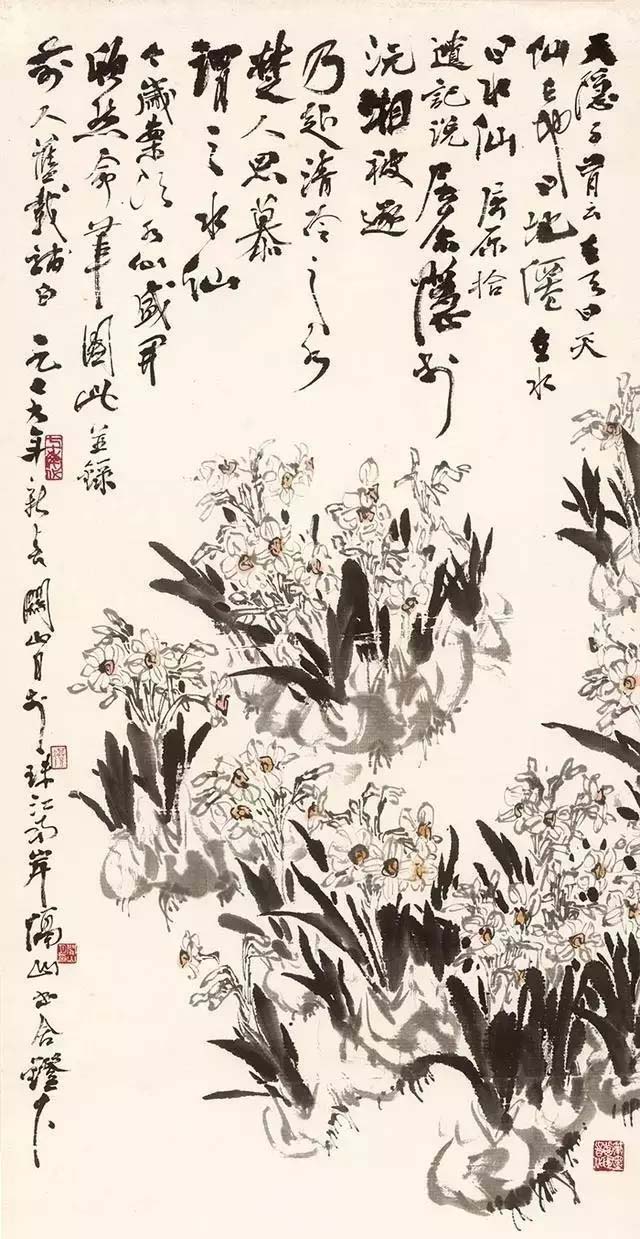 天隱子有云在天曰天
仙在地曰地僊在水
曰水仙 屈原拾
遺記說屈原隱於
沅湘被逐
乃赴清泠之水
楚人思慕
謂之水仙
今歲案頭水仙盛開
欣然命筆圖此並錄
前人舊載補白 一九七九年新春關山月於珠江南岸隔山書舍燈下